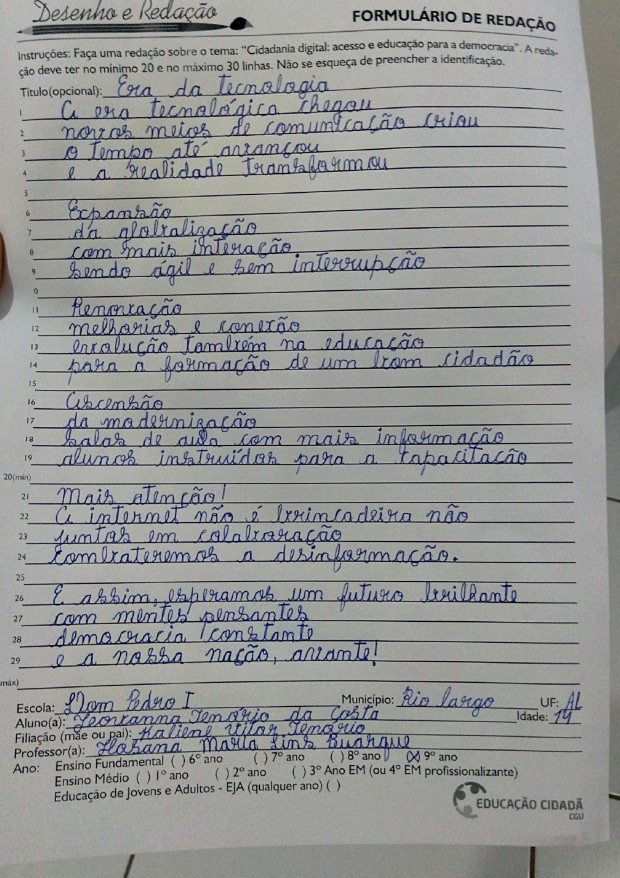 Desenho e Redação
FORMULÁRIO DE REDAÇÃO
Instruções: Faça uma redação sobre o tema: "Cidadania digital: acesso e educação para a democracia". A reda-
ção deve ter no mínimo 20 e no máximo 30 linhas. Não se esqueça de preencher a identificação.
Título(opcional): Era da tecnologia
1 A era tecnológica chegou
2 novos meios de comunicação criou
3 o tempo até avançou
4 e a realidade transformou
5
6 Expansão
7 da globalização
8 com mais interação
9 sendo ágil e sem interrupção
0
11 Renovação
12 melhorias e conexão
13 evolução também na educação
14 para a formação de um bom cidadão
15
16 Ascensão
17 da modernização
18 salas de aula com mais informação
19 alunos instruídos para a capacitação
20(min)
21 Mais atenção!
22 A internet não é brincadeira não
23 juntos em colaboração
24 Combateremos a desinformação.
25
26 E assim, esperamos um futuro brilhante
27 com mentes pensantes
28 democracia constante
29 e a nossa nação, avante!
máx)
Escola: Dom Pedro I Município: Rio largo UF: AL
Aluno(a): Tenório da Costa Idade: 14
Filiação (mãe ou pai): Vitor Tenório
Professor(a): Maria Lins Buarque
Ano: Ensino Fundamental ( ) 6º ano ( ) 7º ano ( ) 8º ano (x) 9º ano
Ensino Médio ( ) 1º ano ( ) 2º ano ( ) 3º Ano EM (ou 4º EM profissionalizante)
Educação de Jovens e Adultos - EJA (qualquer ano) ( )
EDUCAÇÃO CIDADÃ
CGU